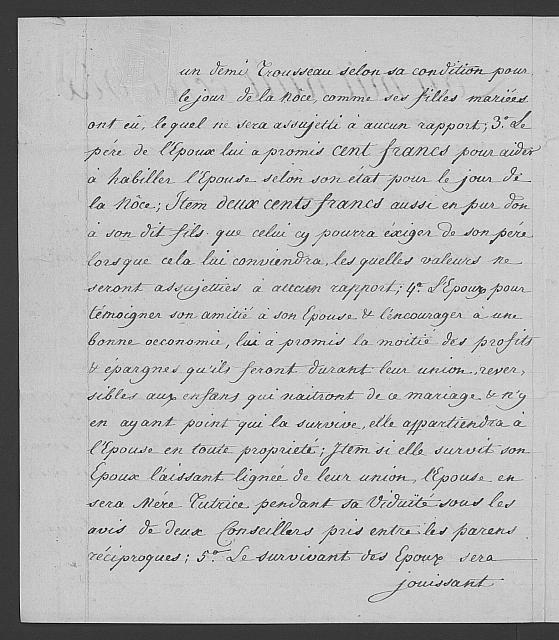 un demi Trousseau selon sa condition pour
le jour de la nôce, comme ses filles mariées
ont eû, lequel ne sera assujetti à aucun rapport; 3.° Le
pére de l'Epoux lui a promis cent francs pour aider
à habiller l'Epouse selon son état pour le jour de
la Nôce; Item deux cents francs aussi en pur don
à son dit fils, que celui cy pourra éxiger de son pére
lorsque cela lui conviendra, les quelles valeurs ne
seront assujetties à aucun rapport; 4.° L'Epoux pour
témoigner son amitié à son Epouse & l'encourager à une
bonne oeconomie, lui à promis la moitié des profits
& épargnes qu'ils feront durant leur union, rever-
sibles aux enfans qui naitront de ce mariage & n'y
en ayant point qui la survive, elle appartiendra à
l'Epouse en toute propriété; Item si elle survit son
Epoux laissant lignée de leur union, l'Epouse en
sera Mére Tutrice pendant sa Viduïté sous les
avis de deux Conseillers pris entre les parens
réciproques; 5.° Le survivant des Epoux sera
jouissant